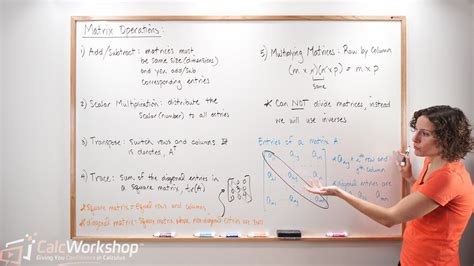 Matrix Operations:
1) Add/Subtract: matrices must
be same size (dimensions)
and you add/sub
corresponding entries
2) Scalar Multiplication: distribute the
scalar (number) to all entries
3) Transpose: Switch rows and columns. It
is denoted, Aᵀ
4) Trace: sum of the diagonal entries in
a square matrix, tr(A)
* Square matrix = Equal rows and columns
* diagonal matrix = Square matrix whose nondiagonal entries are zero
5) Multiplying Matrices: Row by Column
(m × n)(n × p) = m × p
same
* Can NOT divide matrices, instead
we will use inverses.
Entries of a matrix A:
row and
column
diagonal entries are
CalcWorkshop
Giving You Confidence in Calculus